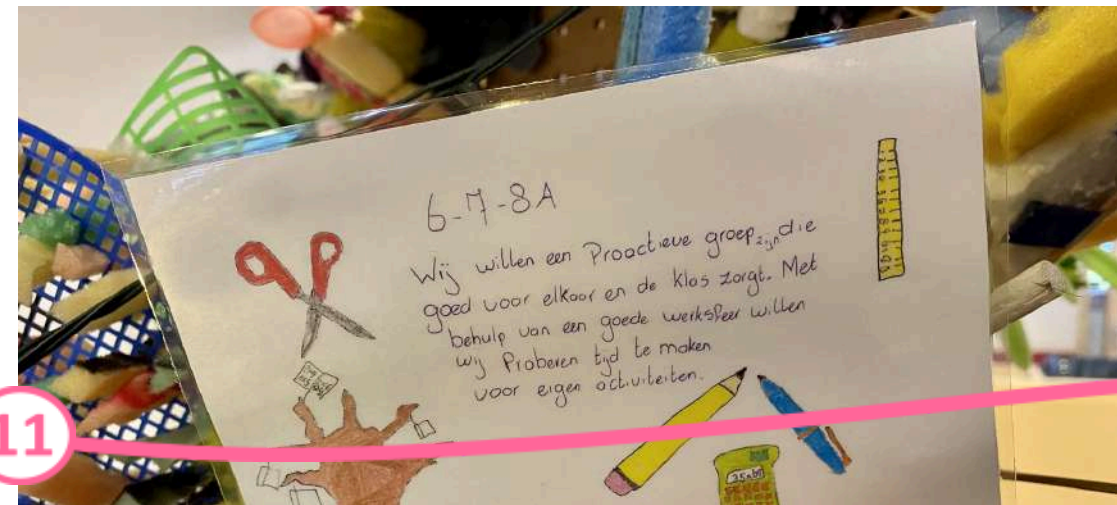 6-7-8A
Wij willen een Proactieve groep zijn die
goed voor elkaar en de klas zorgt. Met
behulp van een goede werksfeer willen
wij Proberen tijd te maken
voor eigen activiteiten.
11